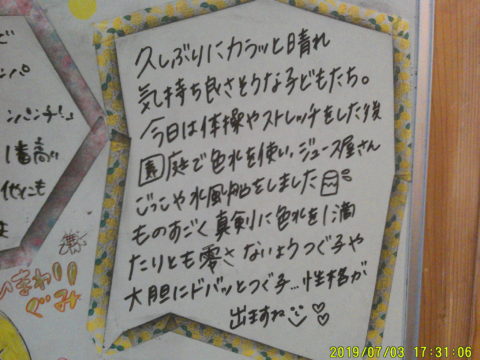 久しぶりにカラッと晴れ
気持ち良さそうな子どもたち。
今日は体操やストレッチをした後
園庭で色水を使い、ジュース屋さん
ごっこや水風船をしました
ものすごく真剣に色水を1滴
たりとも零さないようつぐ子や
大胆にドバッとつぐ子…性格が
出ますね
パ
ンパンチ!」
1番高い
他にも
ひまわり
ぐみ
2019/07/03 17:31:06